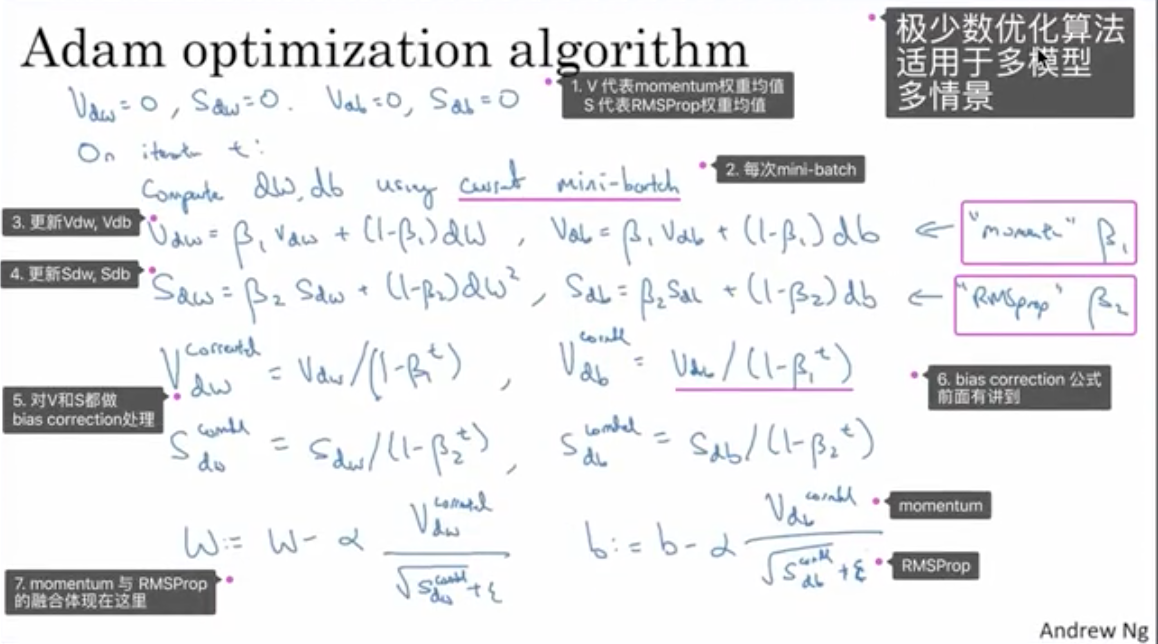 Adam optimization algorithm
极少数优化算法
适用于多模型
多情景
V_dw = 0, S_dw = 0. V_db = 0, S_db = 0
1. V 代表momentum权重均值
S 代表RMSProp权重均值
On iteration t:
Compute dW, db using current mini-batch
2. 每次mini-batch
3. 更新Vdw, Vdb
V_dw = β₁ V_dw + (1-β₁) dW , V_db = β₁ V_db + (1-β₁) db ← "moment" β₁
4. 更新Sdw, Sdb
S_dw = β₂ S_dw + (1-β₂) dW² , S_db = β₂ S_db + (1-β₂) db ← "RMSprop" β₂
V_dw^corrected = V_dw / (1-β₁^t) , V_db^corrected = V_db / (1-β₁^t)
5. 对V和S都做
bias correction处理
6. bias correction 公式
前面有讲到
S_dw^corrected = S_dw / (1-β₂^t) , S_db^corrected = S_db / (1-β₂^t)
W := W - α V_dw^corrected / (√S_dw^corrected + ε) b := b - α V_db^corrected / (√S_db^corrected + ε)
momentum
RMSProp
7. momentum 与 RMSProp
的融合体现在这里
Andrew Ng